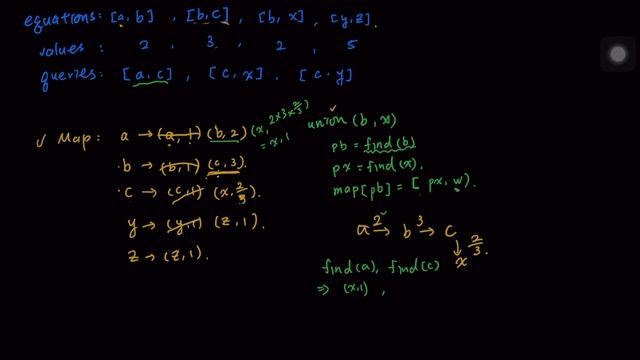 equations: [a, b] , [b, c] , [b, x] , [y, z].
values : 2 , 3 , 2 , 5
queries: [a, c] , [c, x] , [c. y]
✓ Map: a → (a, 1) (b, 2) (x, 2×3×2/3) = x, 1
· b → (b, 1) (c, 3).
· c → (c, 1) (x, 2/3).
y → (y, 1) (z, 1).
z → (z, 1).
union (b, x)
pb = find(b)
px = find(x).
map[pb] = [ px, w).
a 2→ b 3→ c
↓ 2/3.
x
find(a), find(c)
⇒ (x, 1) ,